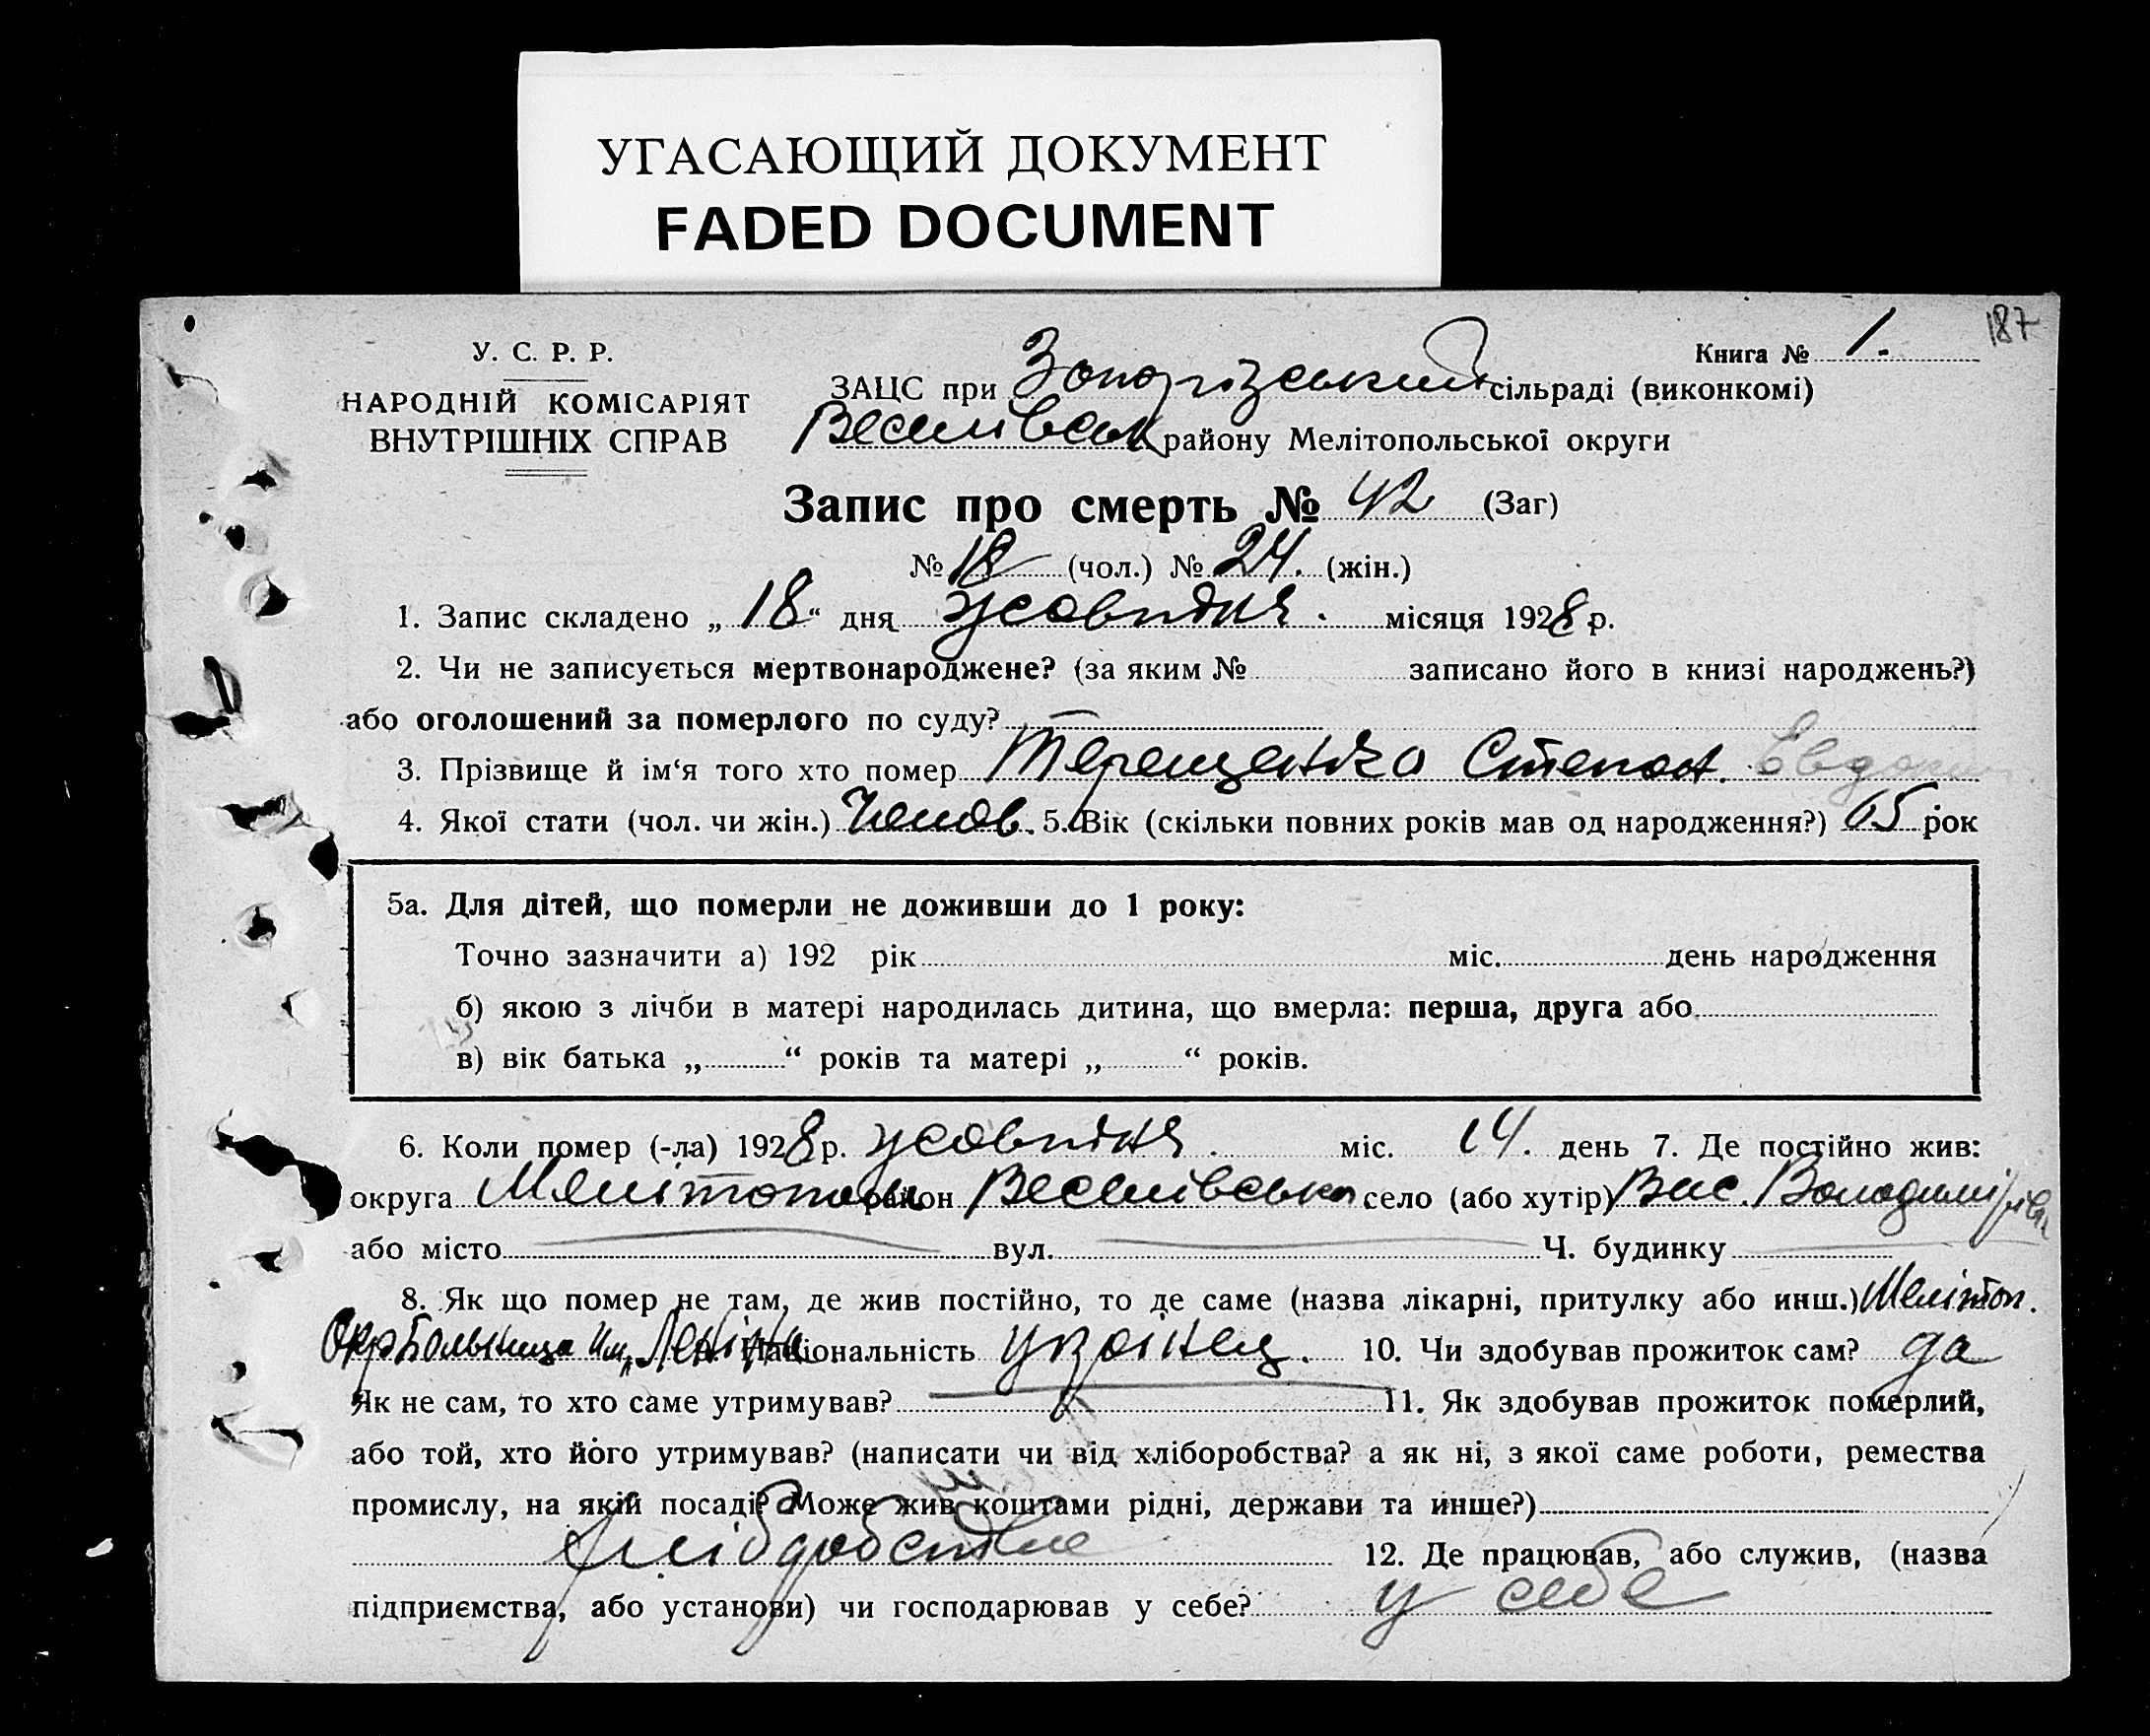 УГАСАЮЩИЙ ДОКУМЕНТ
FADED DOCUMENT
187
У. С. Р. Р.
НАРОДНІЙ КОМІСАРІЯТ
ВНУТРІШНІХ СПРАВ
Книга № 1.
ЗАЦС при Запорізський сільраді (виконкомі)
Веселівськ району Мелітопольської округи
Запис про смерть № 42 (Заг)
№ 18 (чол.) № 24. (жін.)
1. Запис складено „18“ дня жовтня. місяця 1928 р.
2. Чи не записується мертвонароджене? (за яким № записано його в книзі народжень?)
або оголошений за померлого по суду? —
3. Прізвище й ім‘я того хто помер Терещенко Степан. Евдоким
4. Якої стати (чол. чи жін.) Чолов. 5. Вік (скільки повних років мав од народження?) 65 рок
5а. Для дітей, що померли не доживши до 1 року:
Точно зазначити а) 192 рік міс. день народження
б) якою з лічби в матері народилась дитина, що вмерла: перша, друга або
в) вік батька „ “ років та матері „ “ років.
6. Коли помер (-ла) 1928 р. жовтня. міс. 14. день 7. Де постійно жив:
округа Мелітополь район Веселівськ село (або хутір) Вис. Володимирівка
або місто — вул. — Ч. будинку —
8. Як що помер не там, де жив постійно, то де саме (назва лікарні, притулку або инш.) Меліточ.
Окр больница им. Леніна 9. Національність українец. 10. Чи здобував прожиток сам? да
Як не сам, то хто саме утримував? — 11. Як здобував прожиток померлий,
або той, хто його утримував? (написати чи від хліборобства? а як ні, з якої саме роботи, ремества
промислу, на якій посаді? Може жив коштами рідні, держави та инше?)
хліборобство 12. Де працював, або служив, (назва
підприємства, або установи) чи господарював у себе? у себе